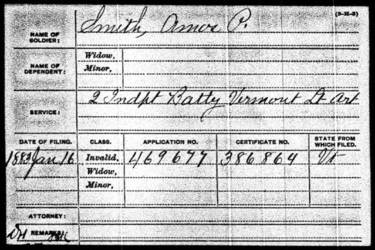 (3-35-5)
NAME OF SOLDIER: Smith, Amor P.
NAME OF DEPENDENT: Widow,
Minor,
SERVICE: 2 Indpt Batty Vermont Lt Art
DATE OF FILING. CLASS. APPLICATION NO. CERTIFICATE NO. STATE FROM WHICH FILED.
Jan 16 Invalid, 469677 386864 Vt
Widow,
Minor,
ATTORNEY:
REMARKS: